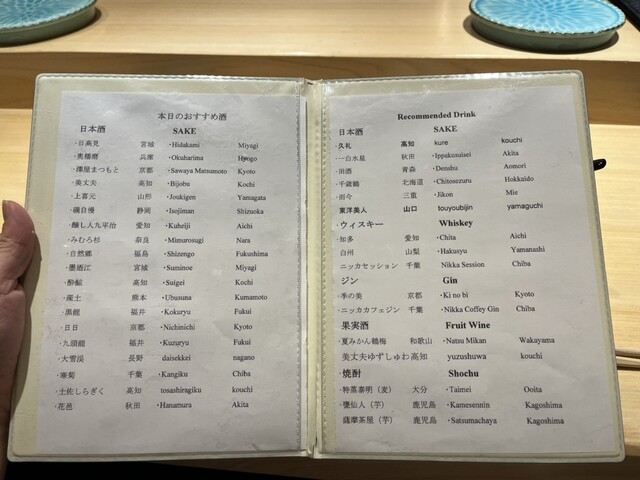 本日のおすすめ酒
日本酒 SAKE
・日高見 宮城 ・Hidakami Miyagi
・奥播磨 兵庫 ・Okuharima Hyogo
・澤屋まつもと 京都 ・Sawaya Matsumoto Kyoto
・美丈夫 高知 ・Bijobu Kochi
・上喜元 山形 ・Joukigen Yamagata
・磯自慢 静岡 ・Isojiman Shizuoka
・醸し人九平治 愛知 ・Kuheiji Aichi
・みむろ杉 奈良 ・Mimurosugi Nara
・自然郷 福島 ・Shizengo Fukushima
・墨廼江 宮城 ・Suminoe Miyagi
・酔鯨 高知 ・Suigei Kochi
・産土 熊本 ・Ubusuna Kumamoto
・黒龍 福井 ・Kokuryu Fukui
・日日 京都 ・Nichinichi Kyoto
・九頭龍 福井 ・Kuzuryu Fukui
・大雪渓 長野 daisekkei nagano
・寒菊 千葉 ・Kangiku Chiba
・土佐しらぎく 高知 tosashiragiku kouchi
・花邑 秋田 ・Hanamura Akita
Recommended Drink
日本酒 SAKE
・久礼 高知 kure kouchi
・一白水星 秋田 ・Ippakusuisei Akita
・田酒 青森 ・Denshu Aomori
・千歳鶴 北海道 ・Chitosezuru Hokkaido
・而今 三重 ・Jikon Mie
東洋美人 山口 touyoubijin yamaguchi
・ウィスキー Whiskey
・知多 愛知 ・Chita Aichi
白州 山梨 ・Hakusyu Yamanashi
ニッカセッション 千葉 ・Nikka Session Chiba
ジン Gin
・季の美 京都 ・Ki no bi Kyoto
・ニッカカフェジン 千葉 ・Nikka Coffey Gin Chiba
果実酒 Fruit Wine
・夏みかん鶴梅 和歌山 ・Natsu Mikan Wakayama
美丈夫ゆずしゅわ 高知 yuzushuwa kouchi
・焼酎 Shochu
・特蒸泰明（麦） 大分 ・Taimei Ooita
・甕仙人（芋） 鹿児島 ・Kamesennin Kagoshima
・薩摩茶屋（芋） 鹿児島 ・Satsumachaya Kagoshima